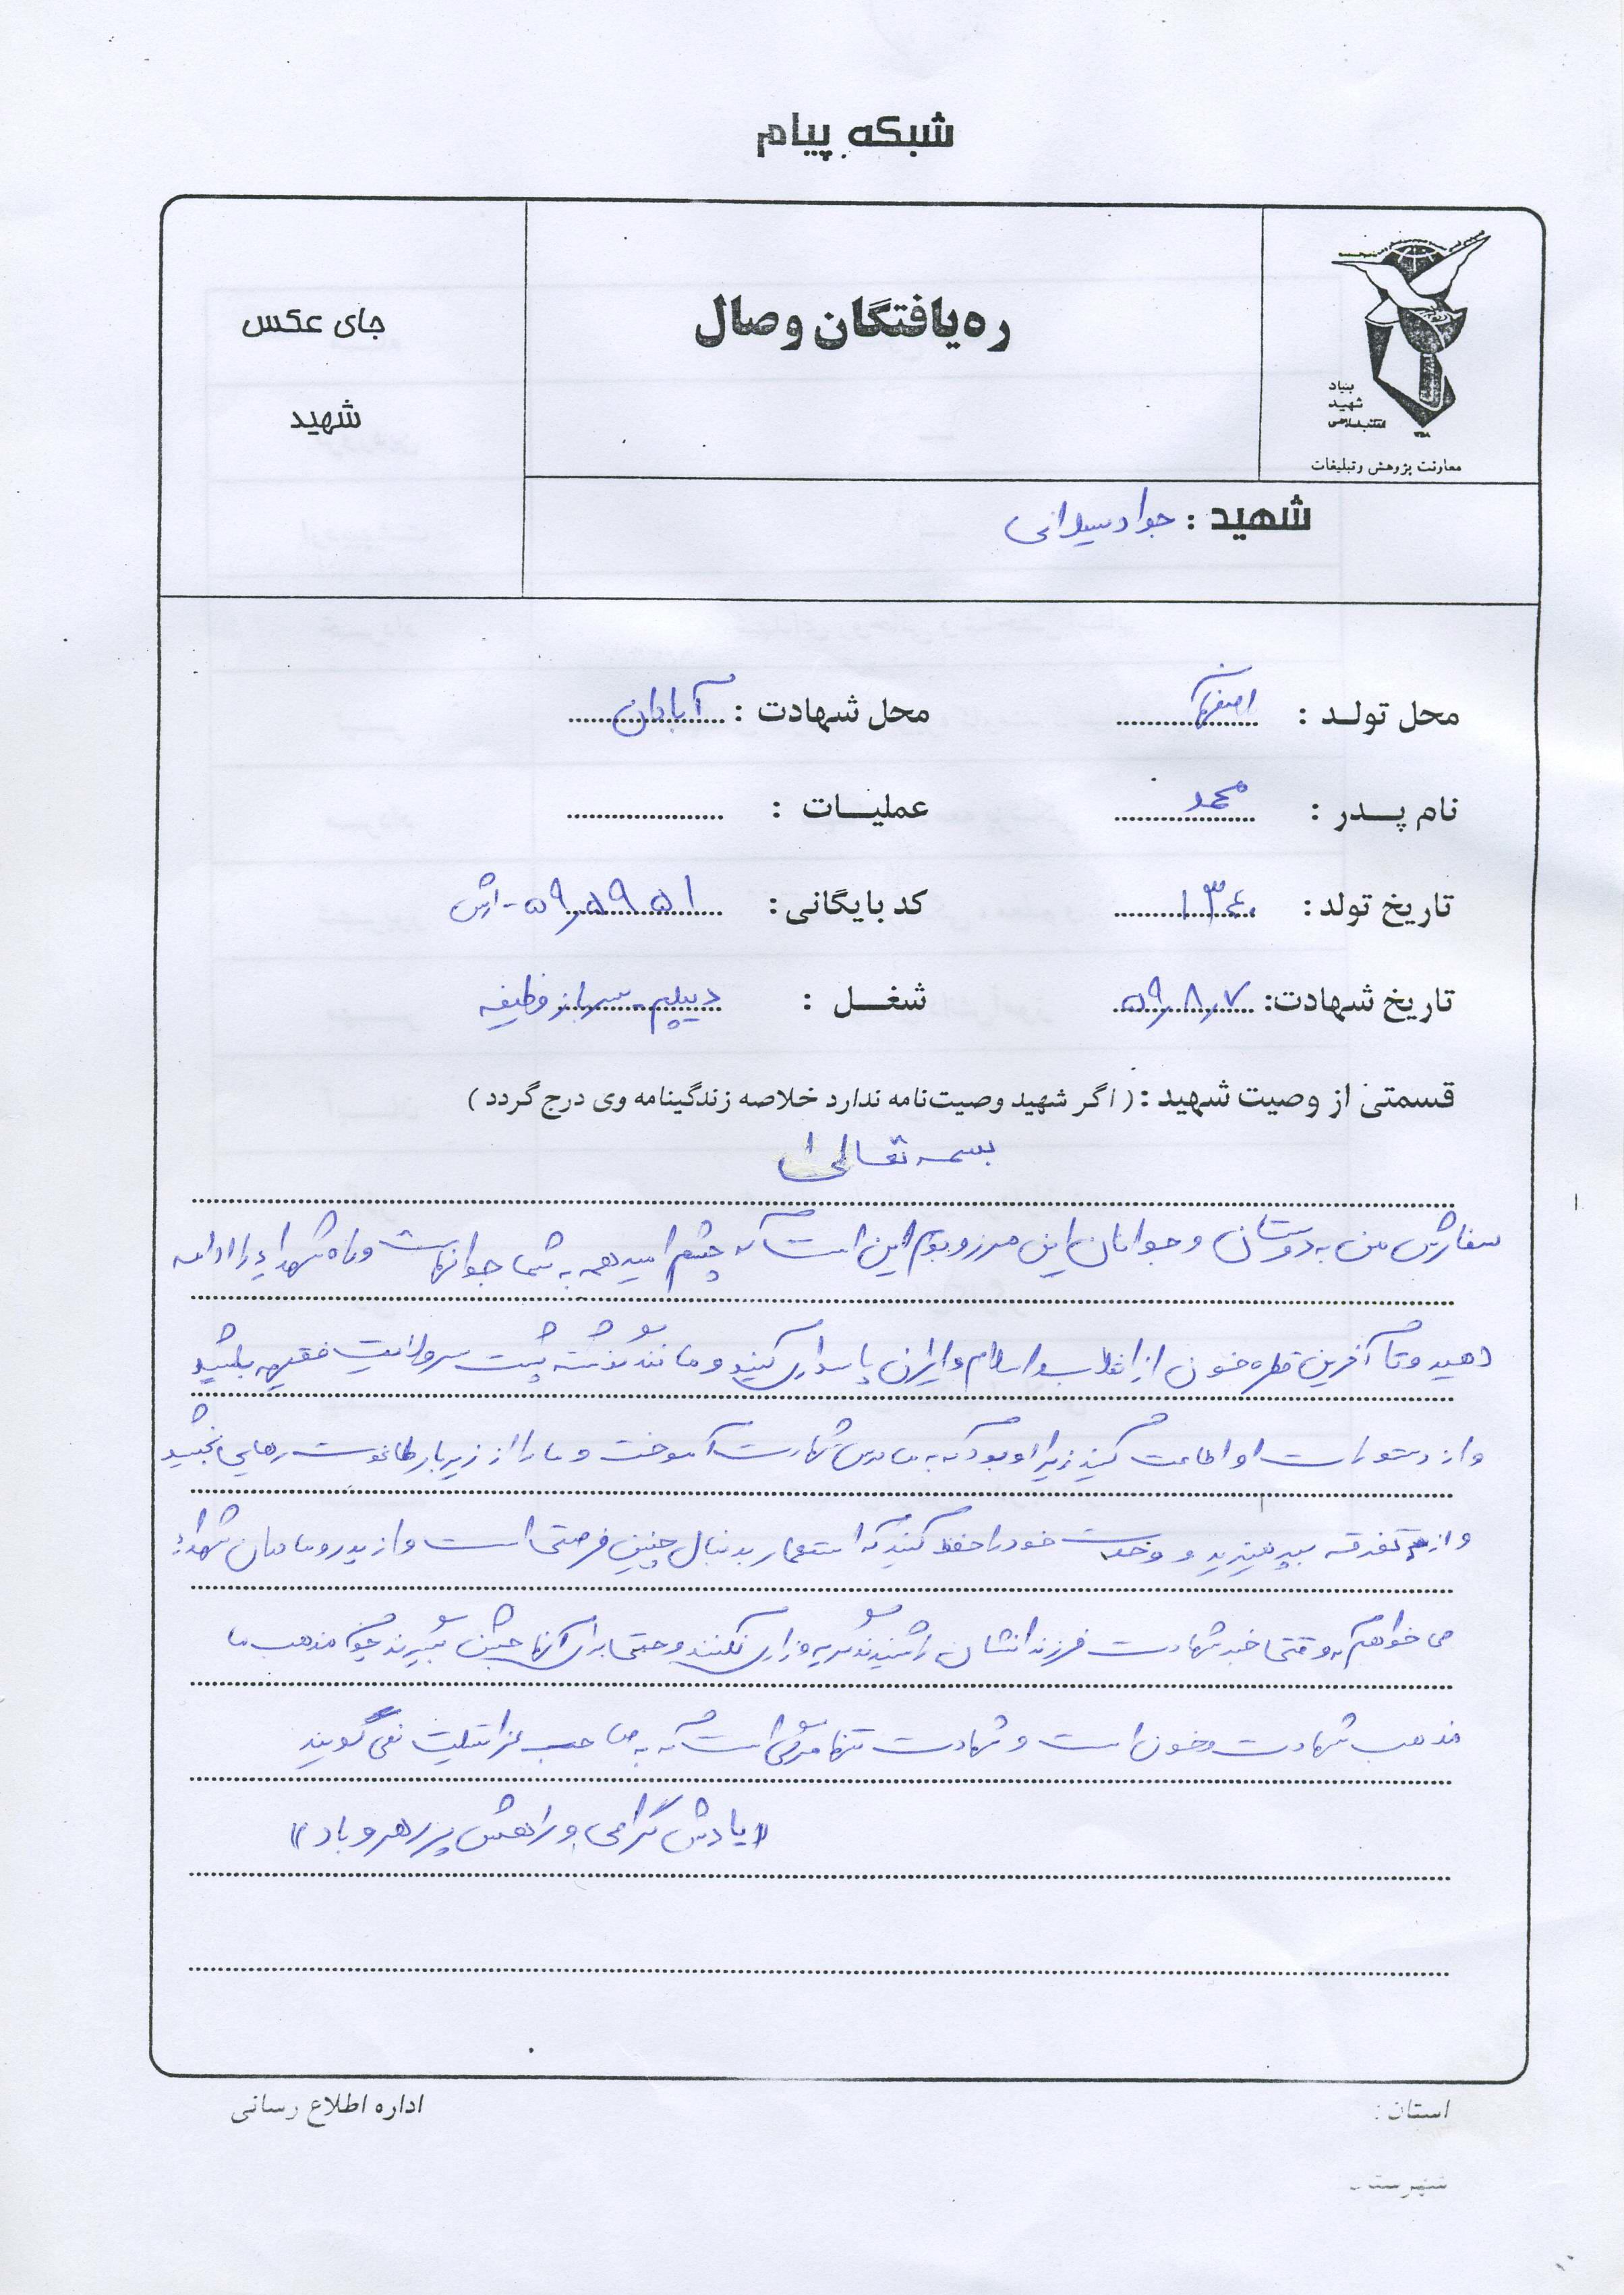 شبکه پیام
جای عکس
شهید
ره‌یافتگان وصال
بنیاد
شهید
انقلاب اسلامی
معاونت پژوهش و تبلیغات
شهید : جواد
محل تولد : اصفهان
محل شهادت : آبادان
نام پدر : محمد
عملیات :
تاریخ تولد : ۱۳۴۰
کد بایگانی : ۵۹۵۹۵۱
تاریخ شهادت : ۵۹٫۸٫۷
شغل : دیپلم - سرباز وظیفه
قسمتی از وصیت شهید : ( اگر شهید وصیت‌نامه ندارد خلاصه زندگینامه وی درج گردد )
بسمه تعالی
سفارش من به دوستان و جوانان این مرز و بوم این است که چشم امید همه به شما جوانهاست و راه شهداء را ادامه
دهید و تا آخرین قطره خون از انقلاب و اسلام و ایران پاسداری کنید و مانند گذشته پشت سر ولایت فقیه باشید
و از دستورات او اطاعت کنید زیرا او بود که به ما درس شهادت آموخت و ما را از زیر بار طاغوت رهایی بخشید
و از تفرقه بپرهیزید و وحدت خود را حفظ کنید که استعمار بدنبال چنین فرصتی است و از پدر و مادران شهداء
می خواهم که وقتی خبر شهادت فرزندانشان را شنیدند گریه و زاری نکنند و حتی برای آنها جشن بگیرند چون مذهب ما
مذهب شهادت و خون است و شهادت تنها مرگی است که به صاحب عزا تسلیت نمی گویند
«یادش گرامی و راهش پر رهرو باد»
استان :
اداره اطلاع رسانی